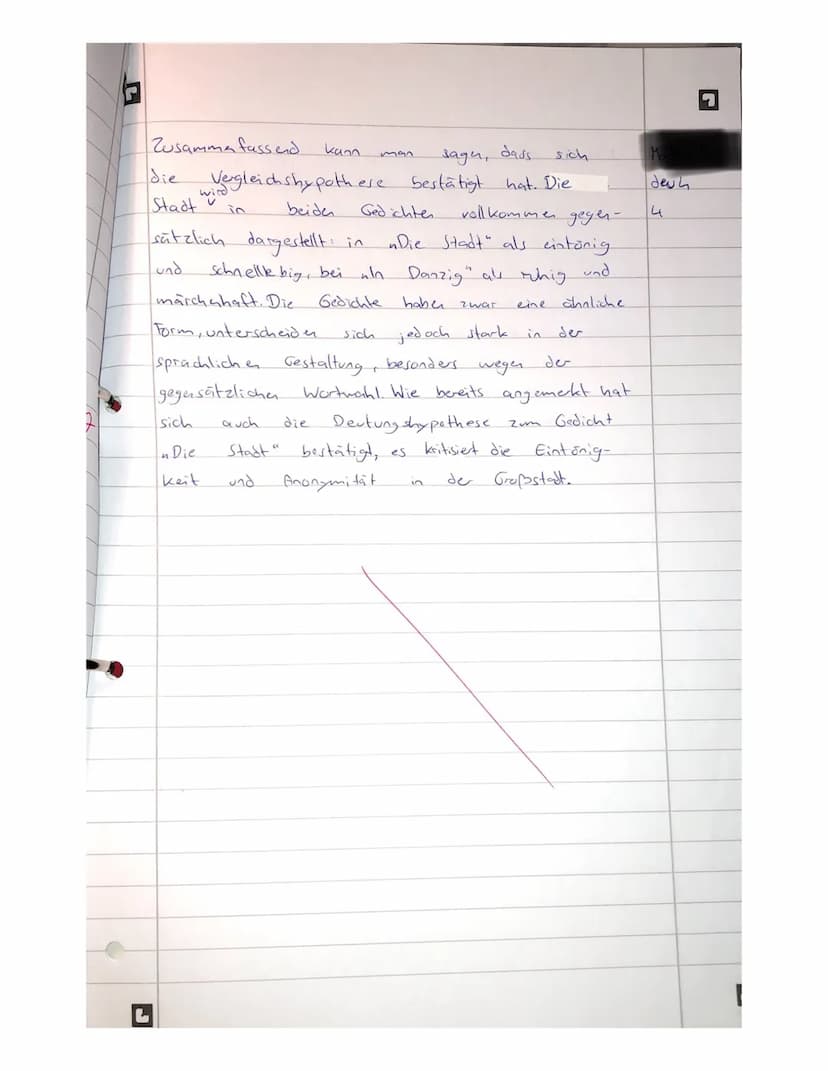 Zusammenfassend kann man sagen, dass sich
die Vergleichshypothese bestätigt hat. Die
wird
Stadt in beiden Gedichten vollkommen gegen-
sätzlich dargestellt: in „Die Stadt" als eintönig
und schnellebig, bei „In Danzig" als ruhig und
märchenhaft. Die Gedichte haben zwar eine ähnliche
Form, unterscheiden sich jedoch stark in der
sprachlichen Gestaltung, besonders wegen der
gegensätzlichen Wortwahl. Wie bereits angemerkt hat
sich auch die Deutungshypothese zum Gedicht
„Die Stadt" bestätigt, es kritisiert die Eintönig-
keit und Anonymität in der Großstadt.
4